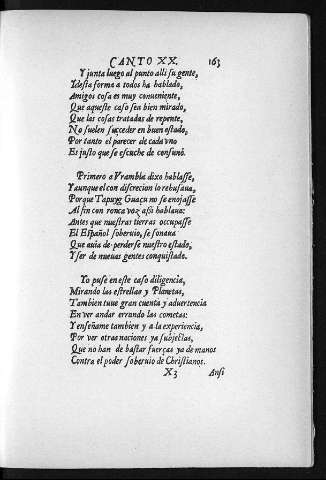 CANTO XX. 163
Y junta luego al punto alli su gente,
Y desta forma a todos ha hablado,
Amigos cosa es muy conueniente,
Que aqueste caso sea bien mirado,
Que las cosas tratadas de repente,
No suelen succeder en buen estado,
Por tanto el parecer de cada vno
Es justo que se escuche de consunó.
Primero a Vrambia dixo hablasse,
Y aunque el con discrecion lo rehusaua,
Porque Tapuyg Guaçu no se enojasse
Al fin con ronca voz assi hablaua:
Antes que nuestras tierras occupasse
El Español soberuio, se sonaua
Que auia de perderse nuestro estado,
Y ser de nueuas gentes conquistado.
Yo puse en este caso diligencia,
Mirando las estrellas y Planetas,
Tambien tuue gran cuenta y aduertencia
En ver andar errando las cometas:
Y enseñame tambien y a la experiencia,
Por ver otras naciones ya subjectas,
Que no han de bastar fuerças ya de manos
Contra el poder soberuio de Christianos.
X3 Ansi